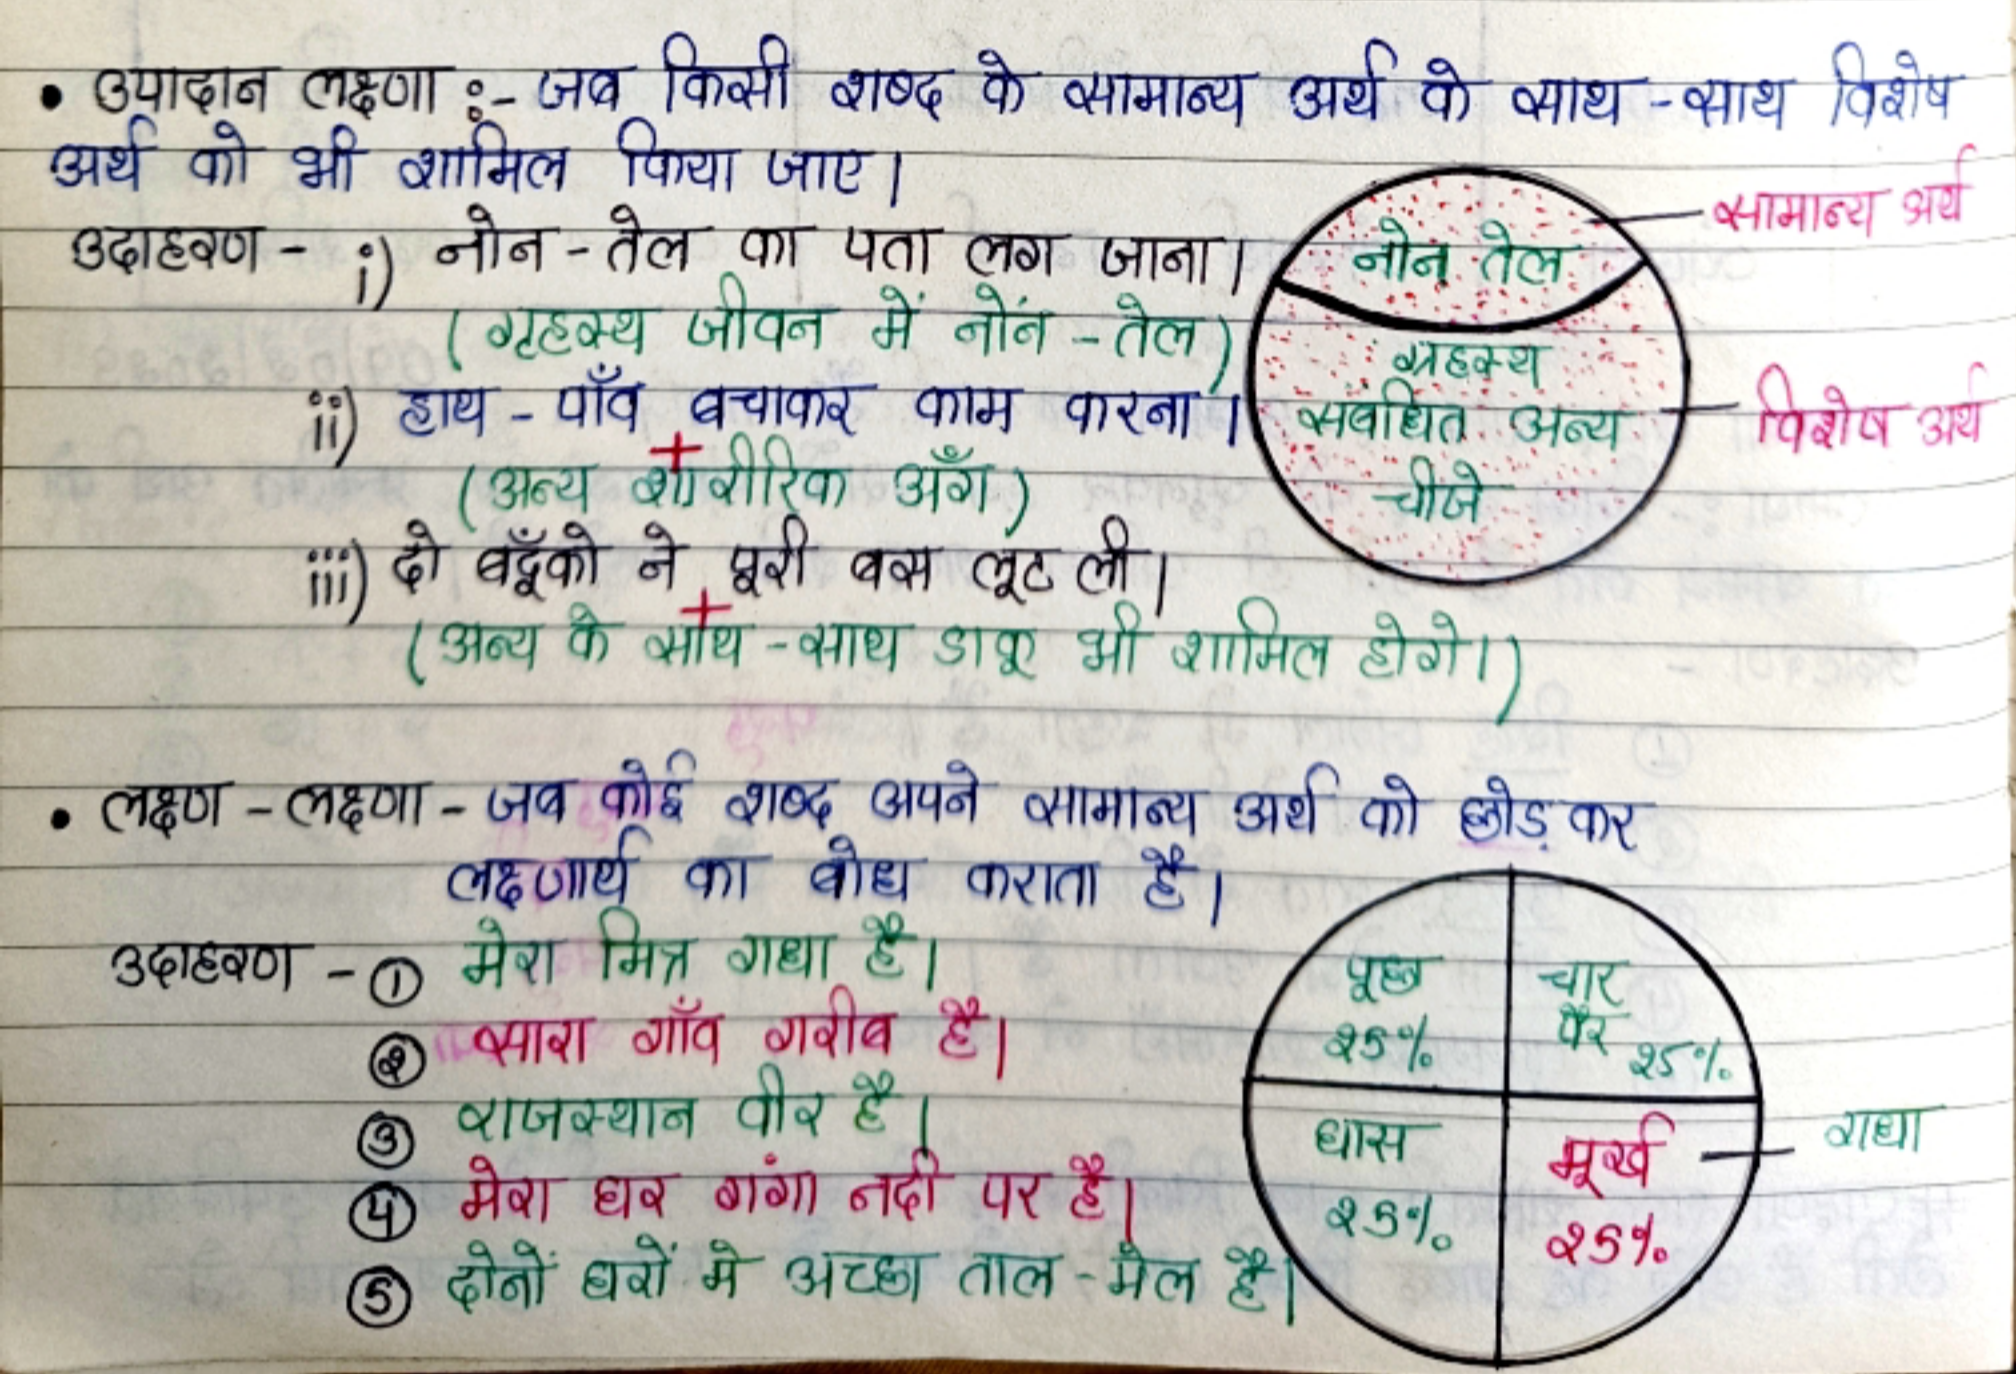 • उपादान लक्षणा :- जब किसी शब्द के सामान्य अर्थ के साथ-साथ विशेष
अर्थ को भी शामिल किया जाए।
उदाहरण - i) नोन-तेल का पता लग जाना।
(गृहस्थ जीवन में नोंन-तेल)
ii) हाथ-पाँव बचाकर काम करना।
+
(अन्य शारीरिक अँग)
iii) दो बदूँको ने पूरी बस लूट ली।
+
(अन्य के साथ-साथ डाकू भी शामिल होगे।)
नोन तेल
सामान्य अर्थ
ग्रहस्थ
संबंधित अन्य
चीजे
विशेष अर्थ
• लक्षण-लक्षणा - जब कोई शब्द अपने सामान्य अर्थ को छोड़ कर
लक्षणार्थ का बोध कराता है।
उदाहरण - ① मेरा मित्र गधा है।
② सारा गाँव गरीब है।
③ राजस्थान वीर है।
④ मेरा घर गंगा नदी पर है।
⑤ दोनों घरों मे अच्छा ताल-मेल है।
पूछ
२5%
चार
पैर २5%
घास
२5%
मूर्ख
२5%
गधा